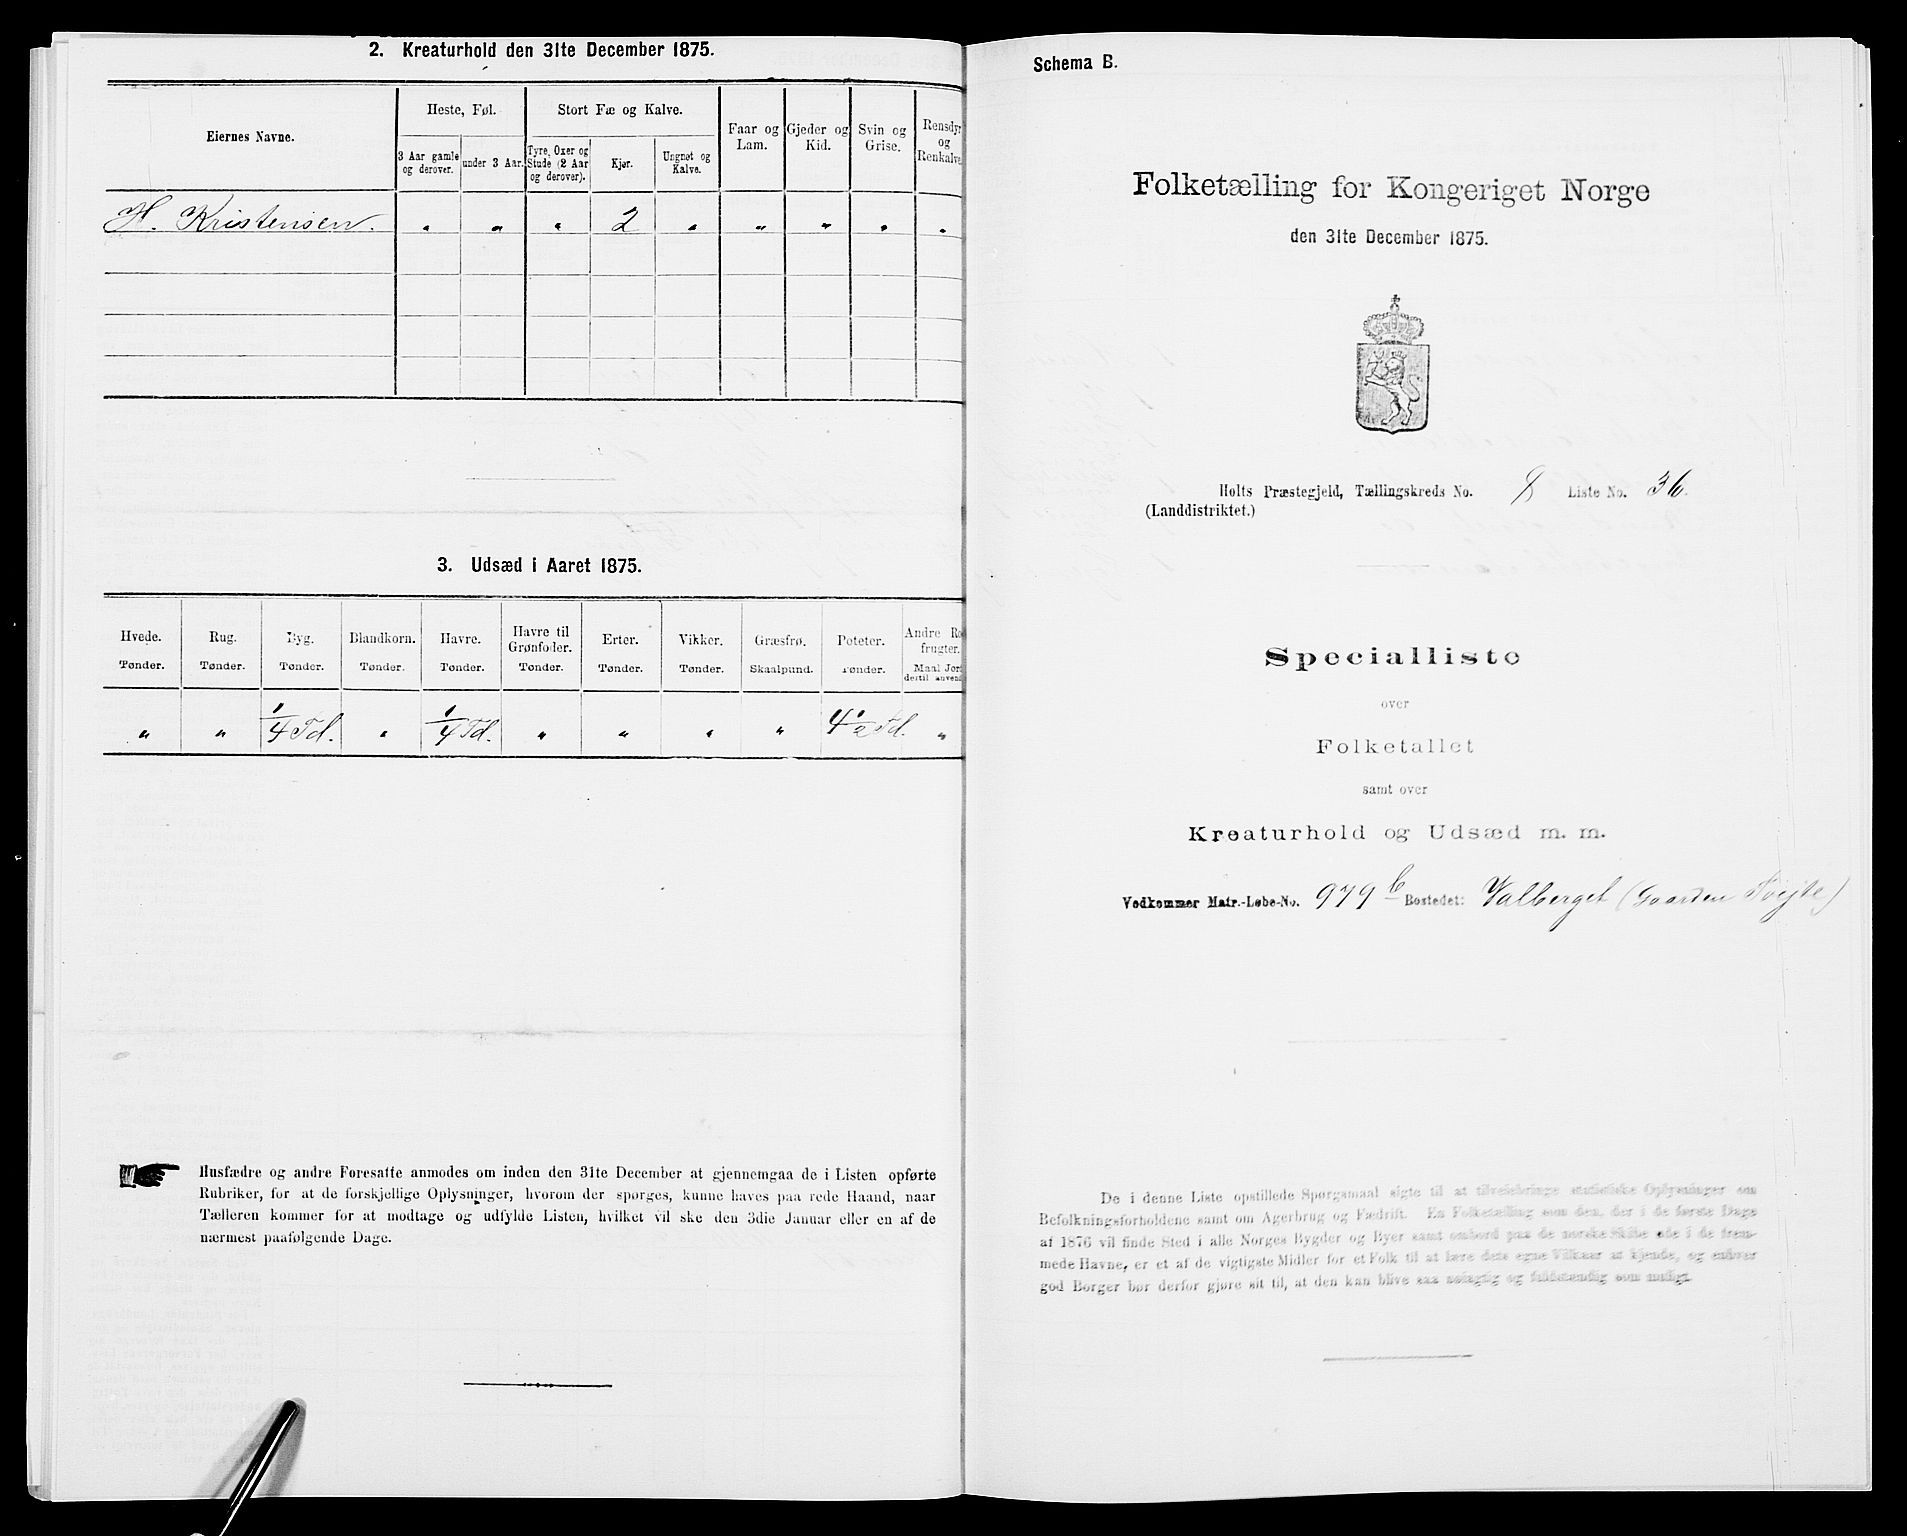 2. Kreaturhold den 31te December 1875.
Eiernes Navne.
Heste, Føl.
3 Aar gamle og derover.
under 3 Aar.
Stort Fæ og Kalve.
Tyre, Oxer og Stude (2 Aar og derover).
Kjør.
Ungnøt og Kalve.
Faar og Lam.
Gjeder og Kid.
Svin og Grise.
Rensdyr og Renkalve.
H. Kristensen. " " " 2 " " " " "
3. Udsæd i Aaret 1875.
Hvede. Rug. Byg. Blandkorn. Havre. Havre til Grønfoder. Erter. Vikker. Græsfrø. Poteter. Andre Ro frugter.
Tønder. Tønder. Tønder. Tønder. Tønder. Tønder. Tønder. Tønder. Skaalpund. Tønder. Maal Jor dertil anvend
" " 1/4 Td. " 1/4 Td. " " " " 4 1/2 Td. "
Husfædre og andre Foresatte anmodes om inden den 31te December at gjennemgaa de i Listen opførte
Rubriker, for at de forskjellige Oplysninger, hvorom der spørges, kunne haves paa rede Haand, naar
Tælleren kommer for at modtage og udfylde Listen, hvilket vil ske den 3die Januar eller en af de
nærmest paafølgende Dage.
Schema B.
Folketælling for Kongeriget Norge
den 31te December 1875.
Holts Præstegjeld, Tællingskreds No. 8 Liste No. 36.
(Landdistriktet.)
Specialliste
over
Folketallet
samt over
Kreaturhold og Udsæd m. m.
Vedkommer Matr.-Løbe-No. 979 b Bostedet: Valberget (Gaarden Tvejte)
De i denne Liste opstillede Spørgsmaal sigte til at tilveiebringe statistiske Oplysninger om
Befolkningsforholdene samt om Agerbrug og Fædrift. En Folketælling som den, der i de første Dage
af 1876 vil finde Sted i alle Norges Bygder og Byer samt ombord paa de norske Skibe ude i de frem-
mede Havne, er et af de vigtigste Midler for et Folk til at lære dets egne Vilkaar at kjende, og enhver
god Borger bør derfor gjøre sit til, at den kan blive saa nøiagtig og fuldstændig som muligt.